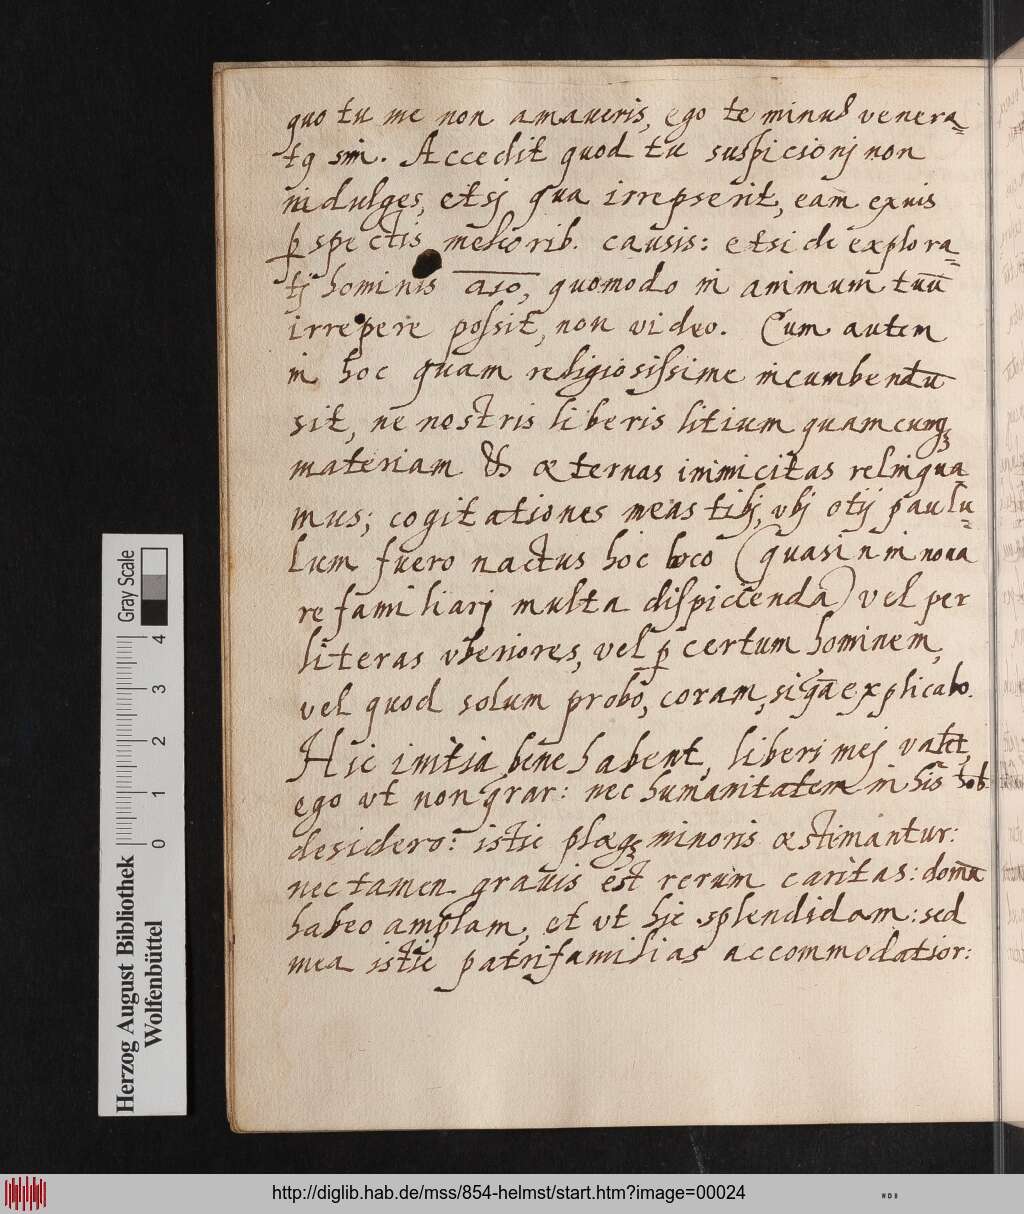 quo tu me non amaueris, ego te minus venera=
tq sim. Accedit quod tu suspicionj non
indulges, etsj qua irrepserit, eam exuis
pspectis melcorib. causis: etsi de explora=
tj hominis aio, quomodo in animum tuū
irrepere possit, non video. Cum autem
in hoc quam religiosissime incumbendū
sit, ne nostris liberis litium quamcumq
materiam & æternas inimicitas relinqua
mus; cogitationes meas tibj, vbj otij paulu=
lum fuero nactus hoc loco (quasi n in noua
re familiarj multa dispicienda) vel per
literas vberiores, vel p certum hominem,
vel quod solum probo, coram, explicabo.
Hic initia bene habent, liberi mej valēt,
ego vt non grar: nec humanitatem in his
desidero: istic plæq minoris æstimantur:
nec tamen grauis est rerum caritas: domū
habeo amplam, et vt hic splendidam: sed
mea istic patrifamilias accommodatior:
Herzog August Bibliothek
Wolfenbüttel
0 1 2 3 4
Gray Scale
http://diglib.hab.de/mss/854-helmst/start.htm?image=00024
WDB